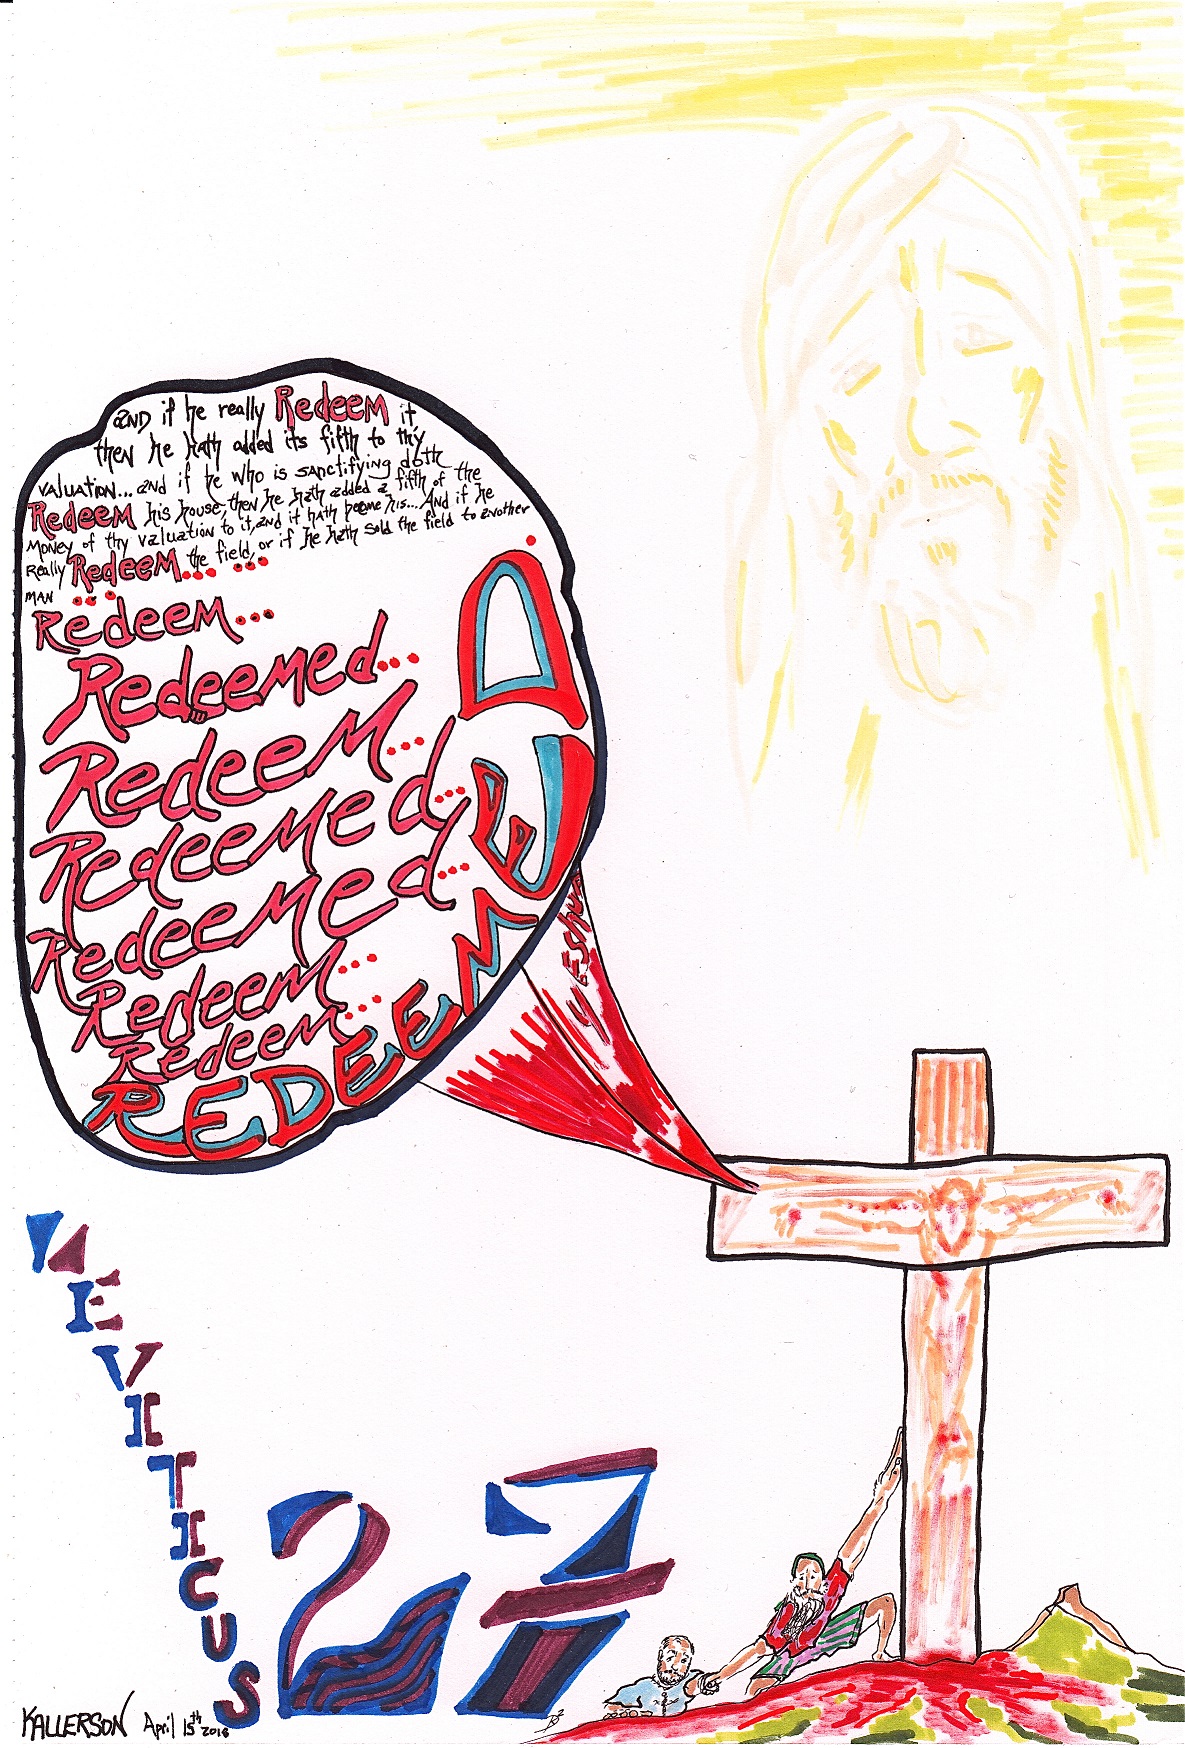 and if he really Redeem it
then he hath added its fifth to thy
valuation... and if he who is sanctifying doth
Redeem his house, then he hath added a fifth of the
money of thy valuation to it, and it hath become his... And if he
really Redeem... the field, or if he hath sold the field to another
man ...
Redeem...
Redeemed...
Redeem...
Redeemed...
Redeemed...
Redeem...
Redeem...
REDEEMED.
Yeshua
LEVITICUS
27
KALLERSON April 15th 2018